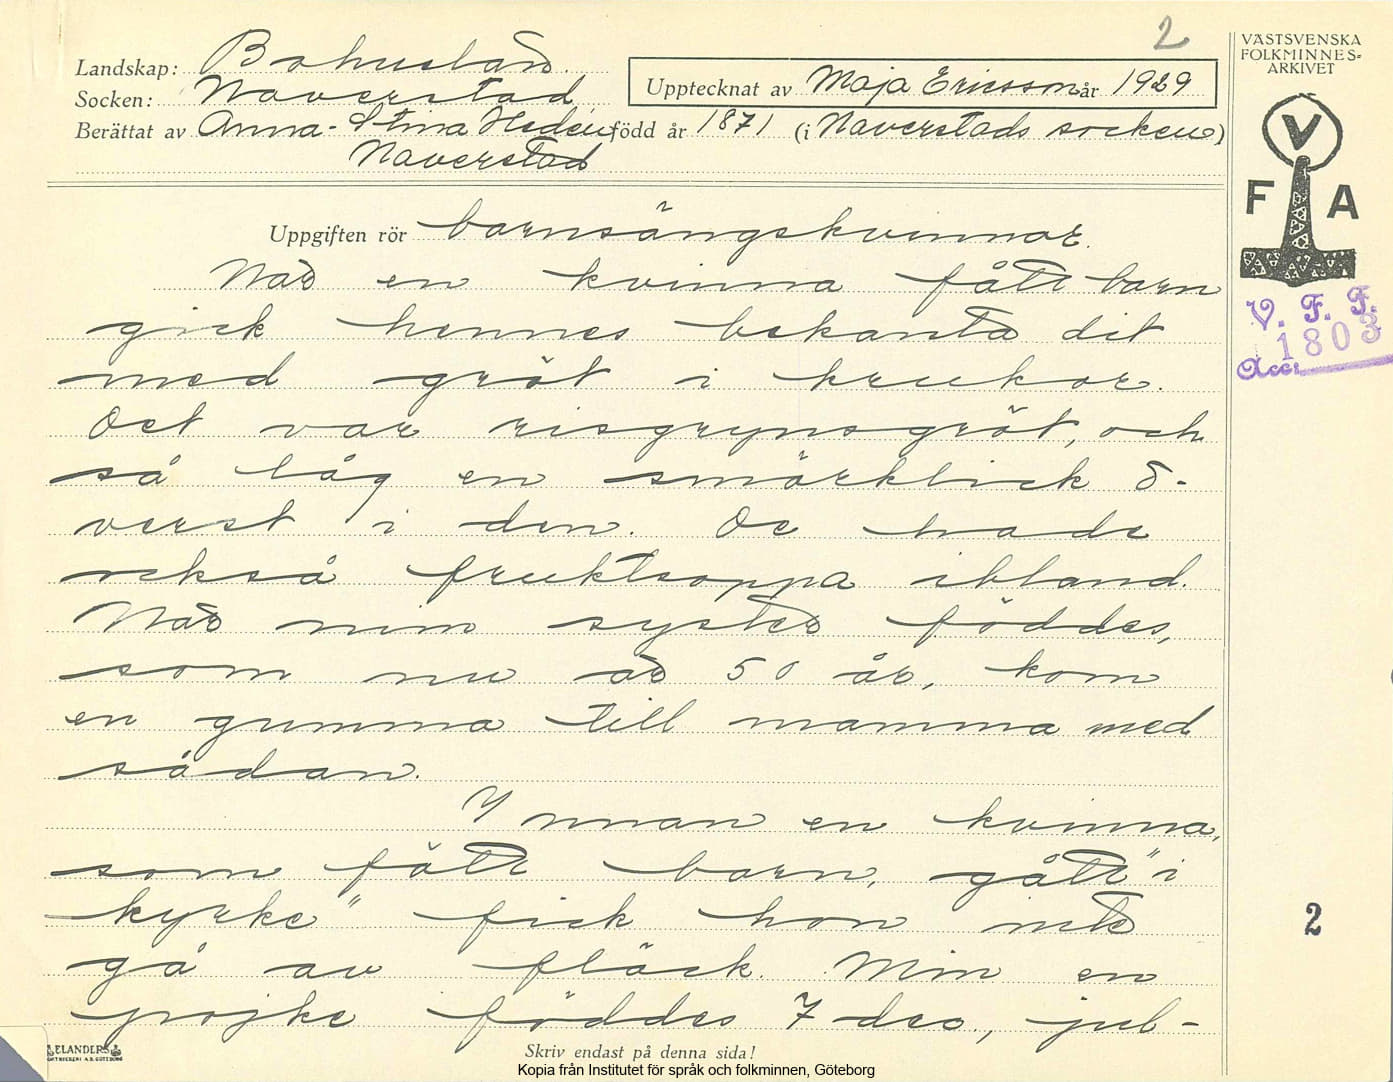 2
VÄSTSVENSKA
FOLKMINNES=
ARKIVET
Landskap: Bohuslän.
Socken: Naverstad.
Upptecknat av Maja Ericsson år 1929
Berättat av Anna-Stina Hedén född år 1871 (i Naverstads socken)
Naverstad
V
F A
V. F. F.
1803
Acc:
Uppgiften rör barnsängskvinnor.
När en kvinna fått barn
gick hennes bekanta dit
med gröt i krukor.
Det var risgrynsgröt, och
så låg en smörklick ö-
verst i den. De hade
också fruktsoppa ibland.
När min syster föddes,
som nu är 50 år, kom
en gumma till mamma med
sådan.
Innan en kvinna,
som fått barn, gått "i
kyrke" fick hon inte
gå av fläck. Min en
pojke föddes 7 dec., jul-
2
ELANDERS
Skriv endast på denna sida!
Kopia från Institutet för språk och folkminnen, Göteborg